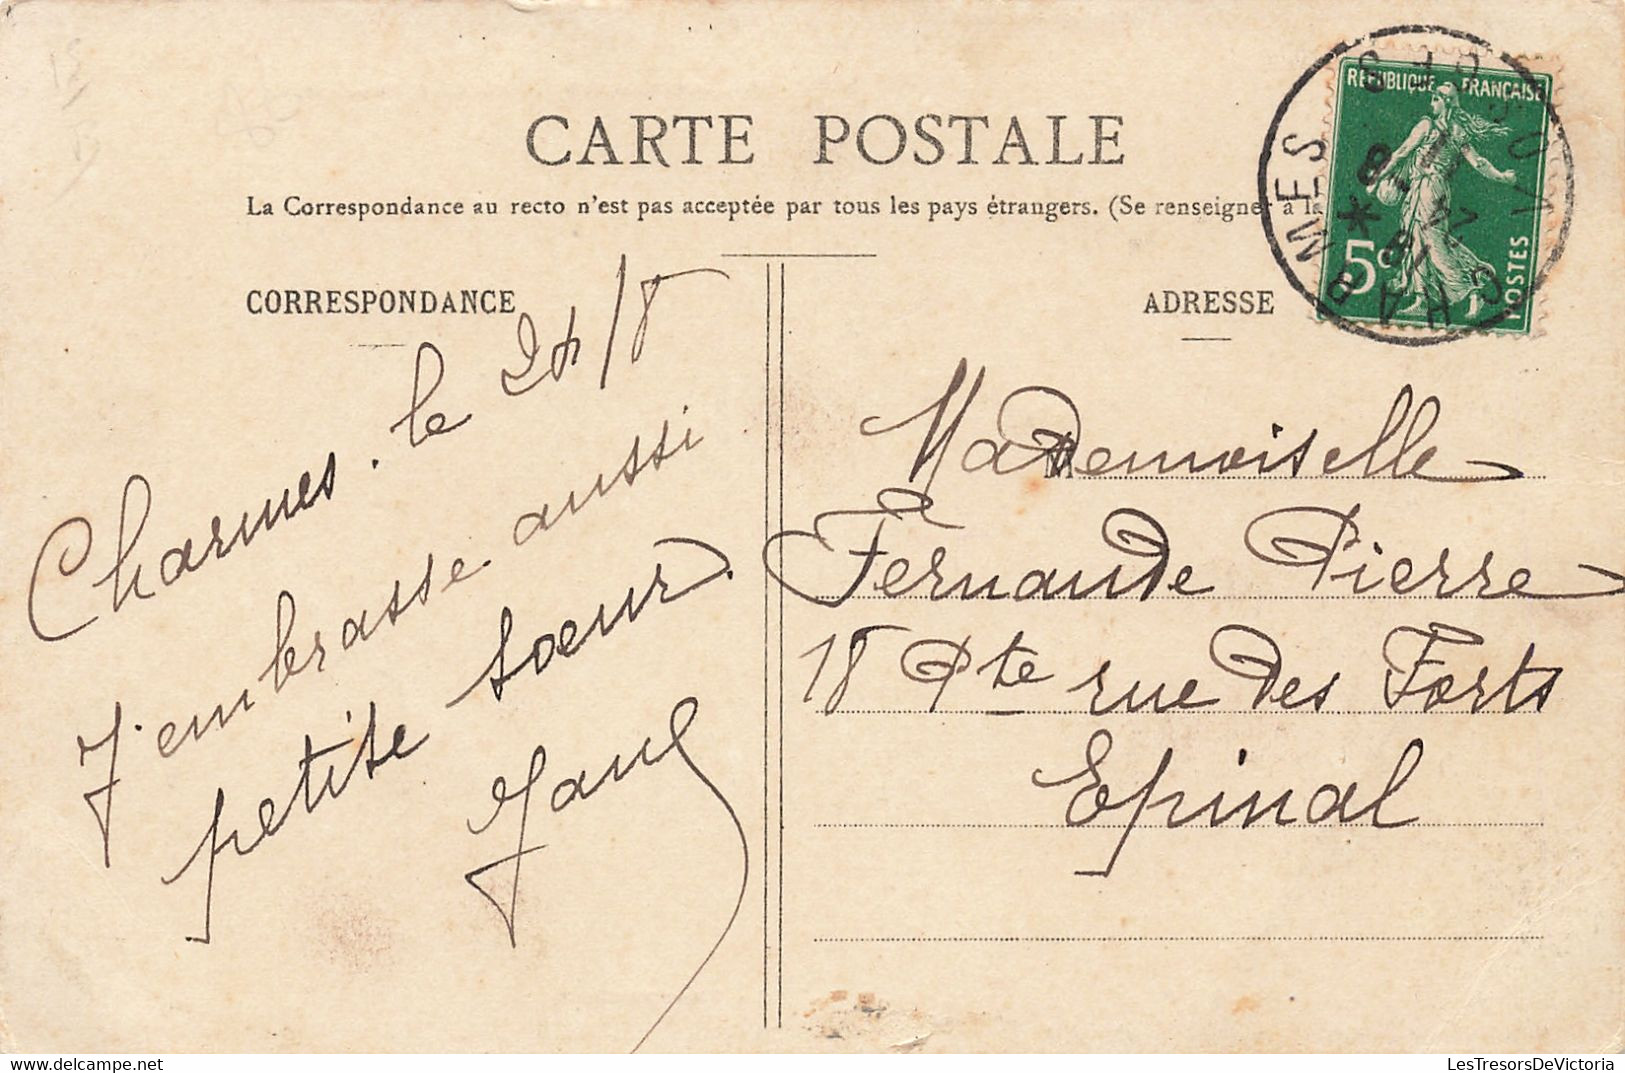 CARTE POSTALE
La Correspondance au recto n'est pas acceptée par tous les pays étrangers. (Se renseigner à la
CORRESPONDANCE
Charmes. le 24/8
J'embrasse aussi
petite soeur.
ADRESSE
Mademoiselle
Fernande Pierre
18 Pte rue des Forts
Epinal
REPUBLIQUE FRANÇAISE
5c
POSTES
CHARMES
VOSGES
LesTresorsDeVictoria